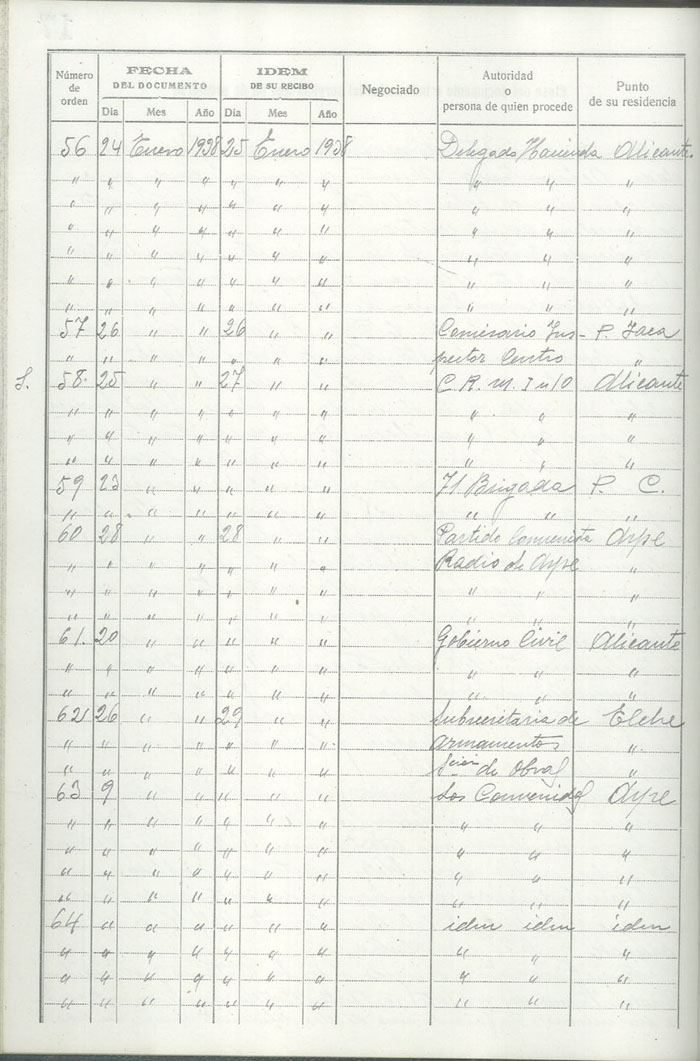 Número de orden | FECHA DEL DOCUMENTO | IDEM DE SU RECIBO | Negociado | Autoridad o persona de quien procede | Punto de su residencia
Dia | Mes | Año | Dia | Mes | Año
56 24 Enero 1938 25 Enero 1938 Delegado Hacienda Alicante.
" " " " " " " " " "
" " " " " " " " " "
" " " " " " " " " "
" " " " " " " " " "
" " " " " " " " " "
" " " " " " " " " "
57 26 " " 26 " " Comisario Ins- P. Jaca
" " " " " " " pector Centro "
S. 58. 25 " " 27 " " C. R. M. I nº 10 Alicante
" " " " " " " " " "
" " " " " " " " " "
" " " " " " " " " "
59 23 " " " " " 71 Brigada P. C.
" " " " " " " " " "
60 28 " " 28 " " Partido Comunista Aspe
" " " " " " " Radio de Aspe "
" " " " " " " " " "
" " " " " " " " " "
61. 20 " " " " " Gobierno Civil Alicante
" " " " " " " " " "
" " " " " " " " " "
62 26 " " 29 " " Subsecretaria de Elche
" " " " " " " armamentos "
" " " " " " " de Obras "
63 9 " " " " " Los Convenidos Aspe
" " " " " " " " " "
" " " " " " " " " "
" " " " " " " " " "
" " " " " " " " " "
64 " " " " " " idem idem idem
" " " " " " " " " "
" " " " " " " " " "
" " " " " " " " " "